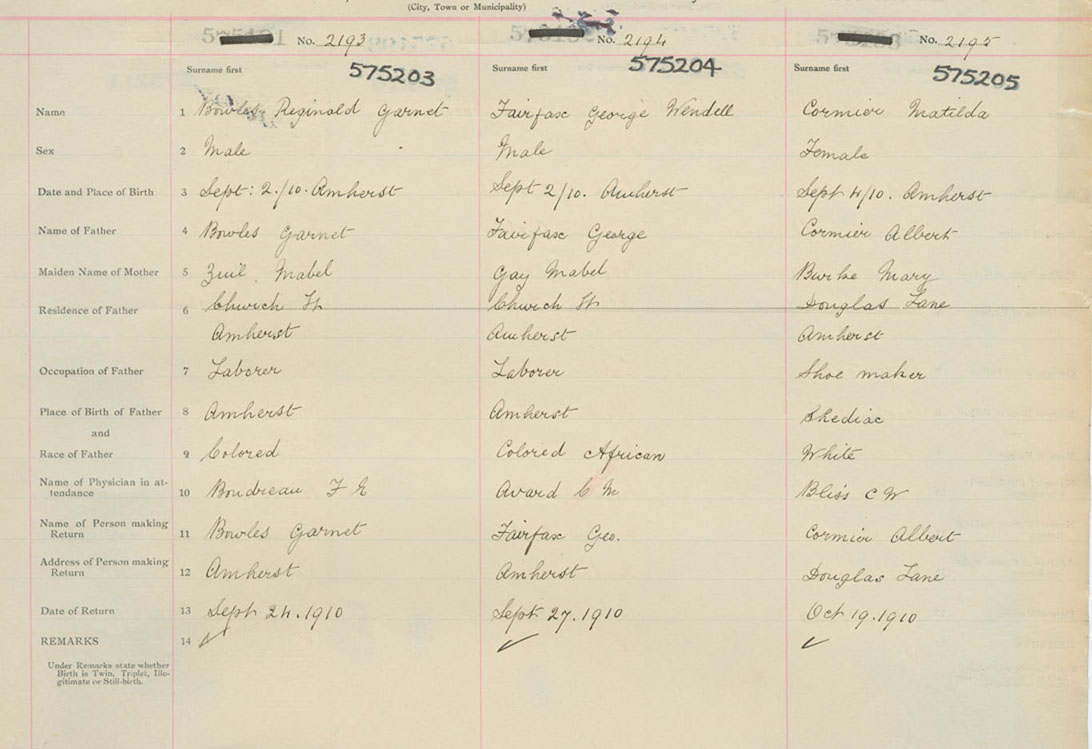 (City, Town or Municipality)
No. 2193 No. 2194 No. 2195
Surname first 575203 Surname first 575204 Surname first 575205
Name 1 Bowles Reginald Garnet Fairfax George Wendell Cormier Matilda
Sex 2 Male Male Female
Date and Place of Birth 3 Sept: 2./10. Amherst Sept 2/10. Amherst Sept 4/10. Amherst
Name of Father 4 Bowles Garnet Fairfax George Cormier Albert
Maiden Name of Mother 5 Mabel Gay Mabel Burke Mary
Residence of Father 6 Church St Church St Douglas Lane
Amherst Amherst Amherst
Occupation of Father 7 Laborer Laborer Shoe maker
Place of Birth of Father 8 Amherst Amherst Shediac
and
Race of Father 9 Colored Colored African White
Name of Physician in at-
tendance 10 Boudreau F E Avard C M Bliss C W
Name of Person making
Return 11 Bowles Garnet Fairfax Geo. Cormier Albert
Address of Person making
Return 12 Amherst Amherst Douglas Lane
Date of Return 13 Sept 24. 1910 Sept 27. 1910 Oct 19. 1910
REMARKS 14 ✓ ✓ ✓
Under Remarks state whether
Birth is Twin, Triplet, Ille-
gitimate or Still-birth.